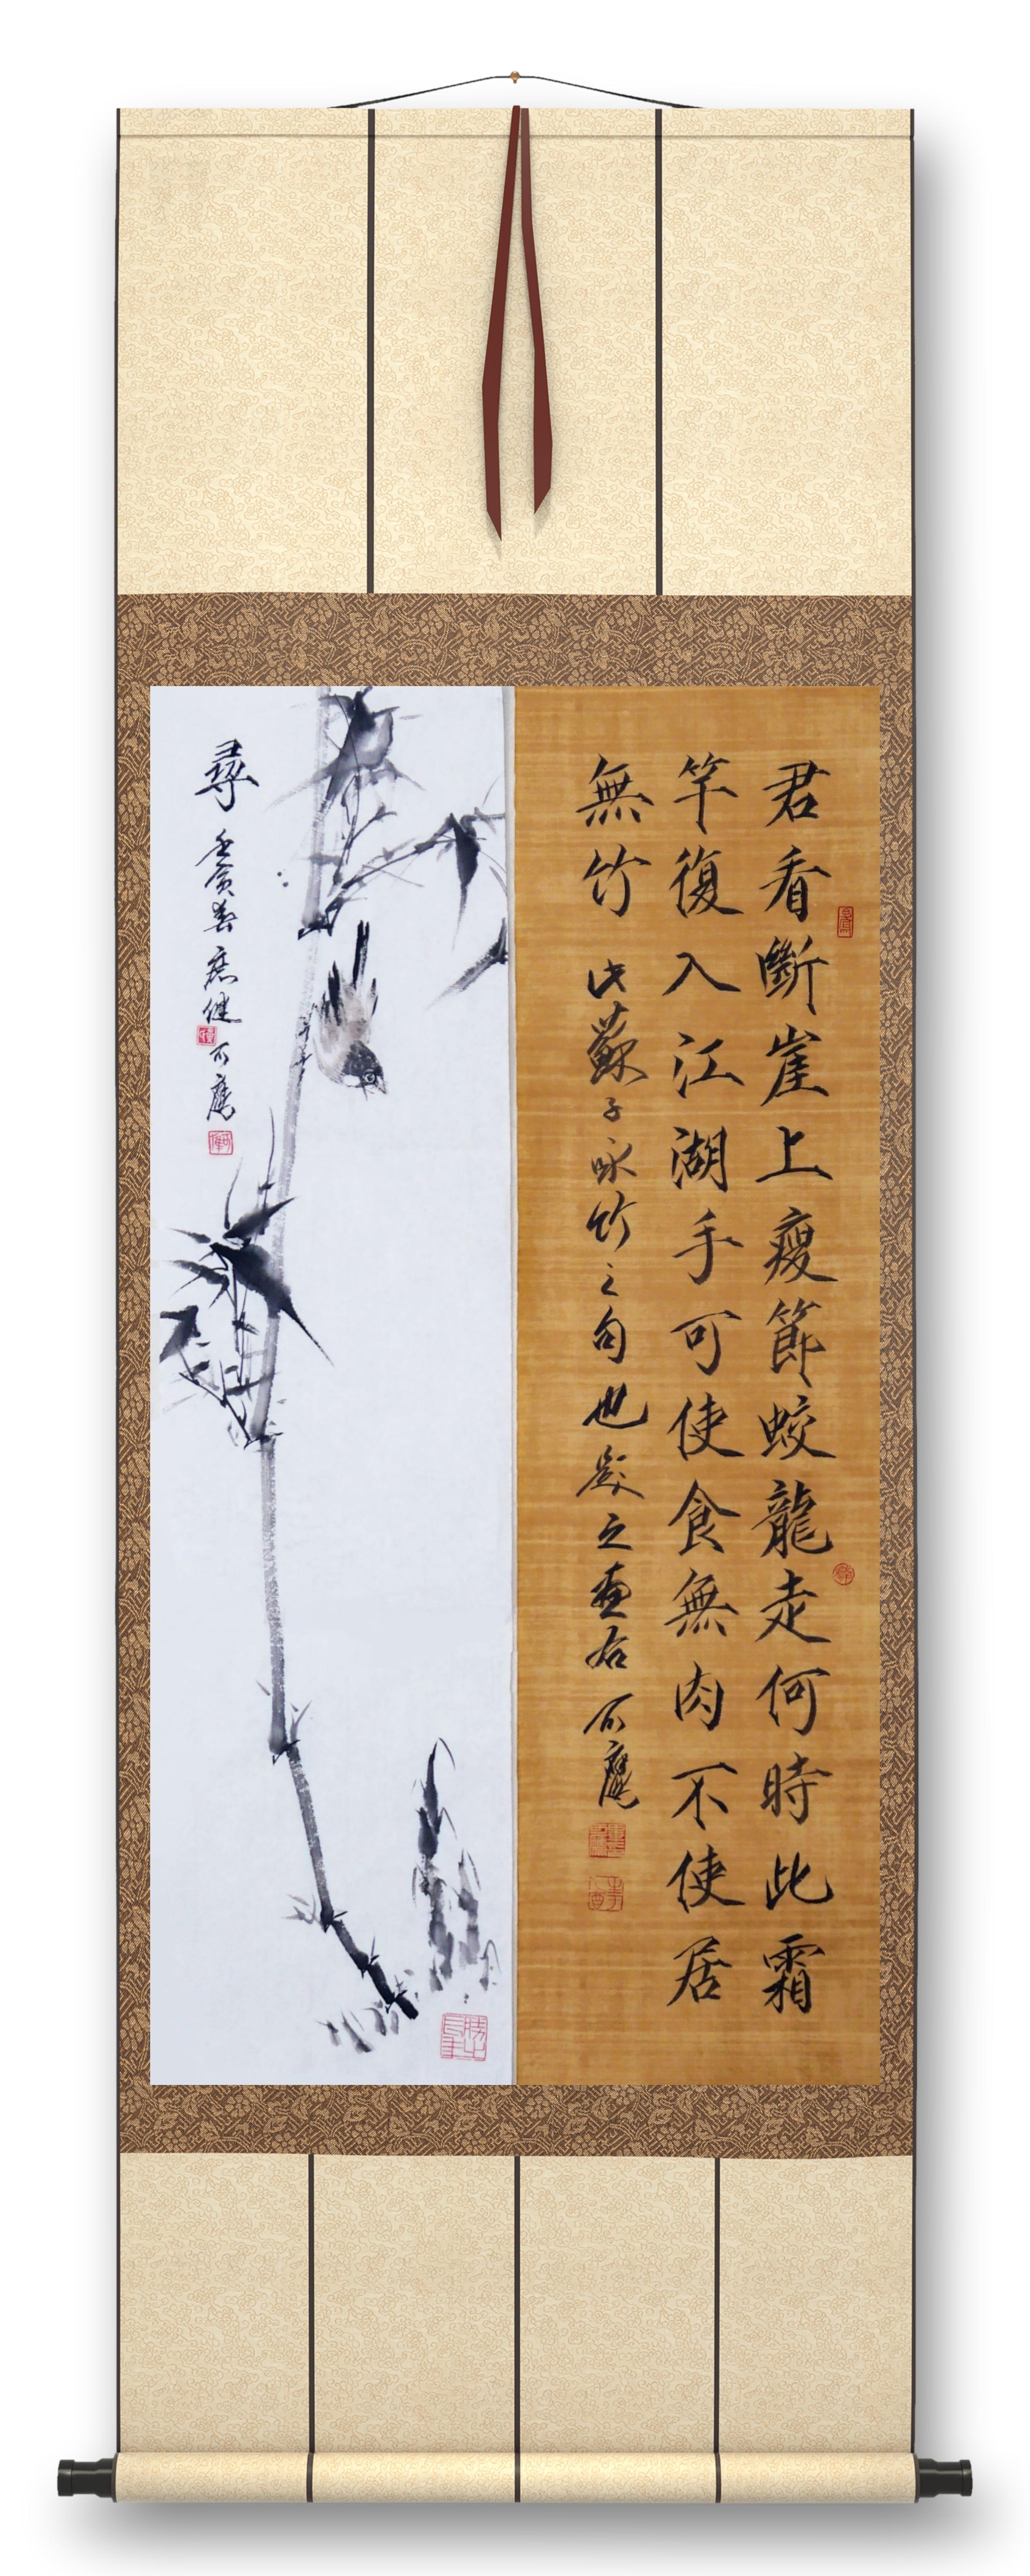 君看斷崖上瘦節蛟龍走何時此霜
竿復入江湖手可使食無肉不使居
無竹 此蘇子咏竹之句也録之畫右
尋
壬寅春